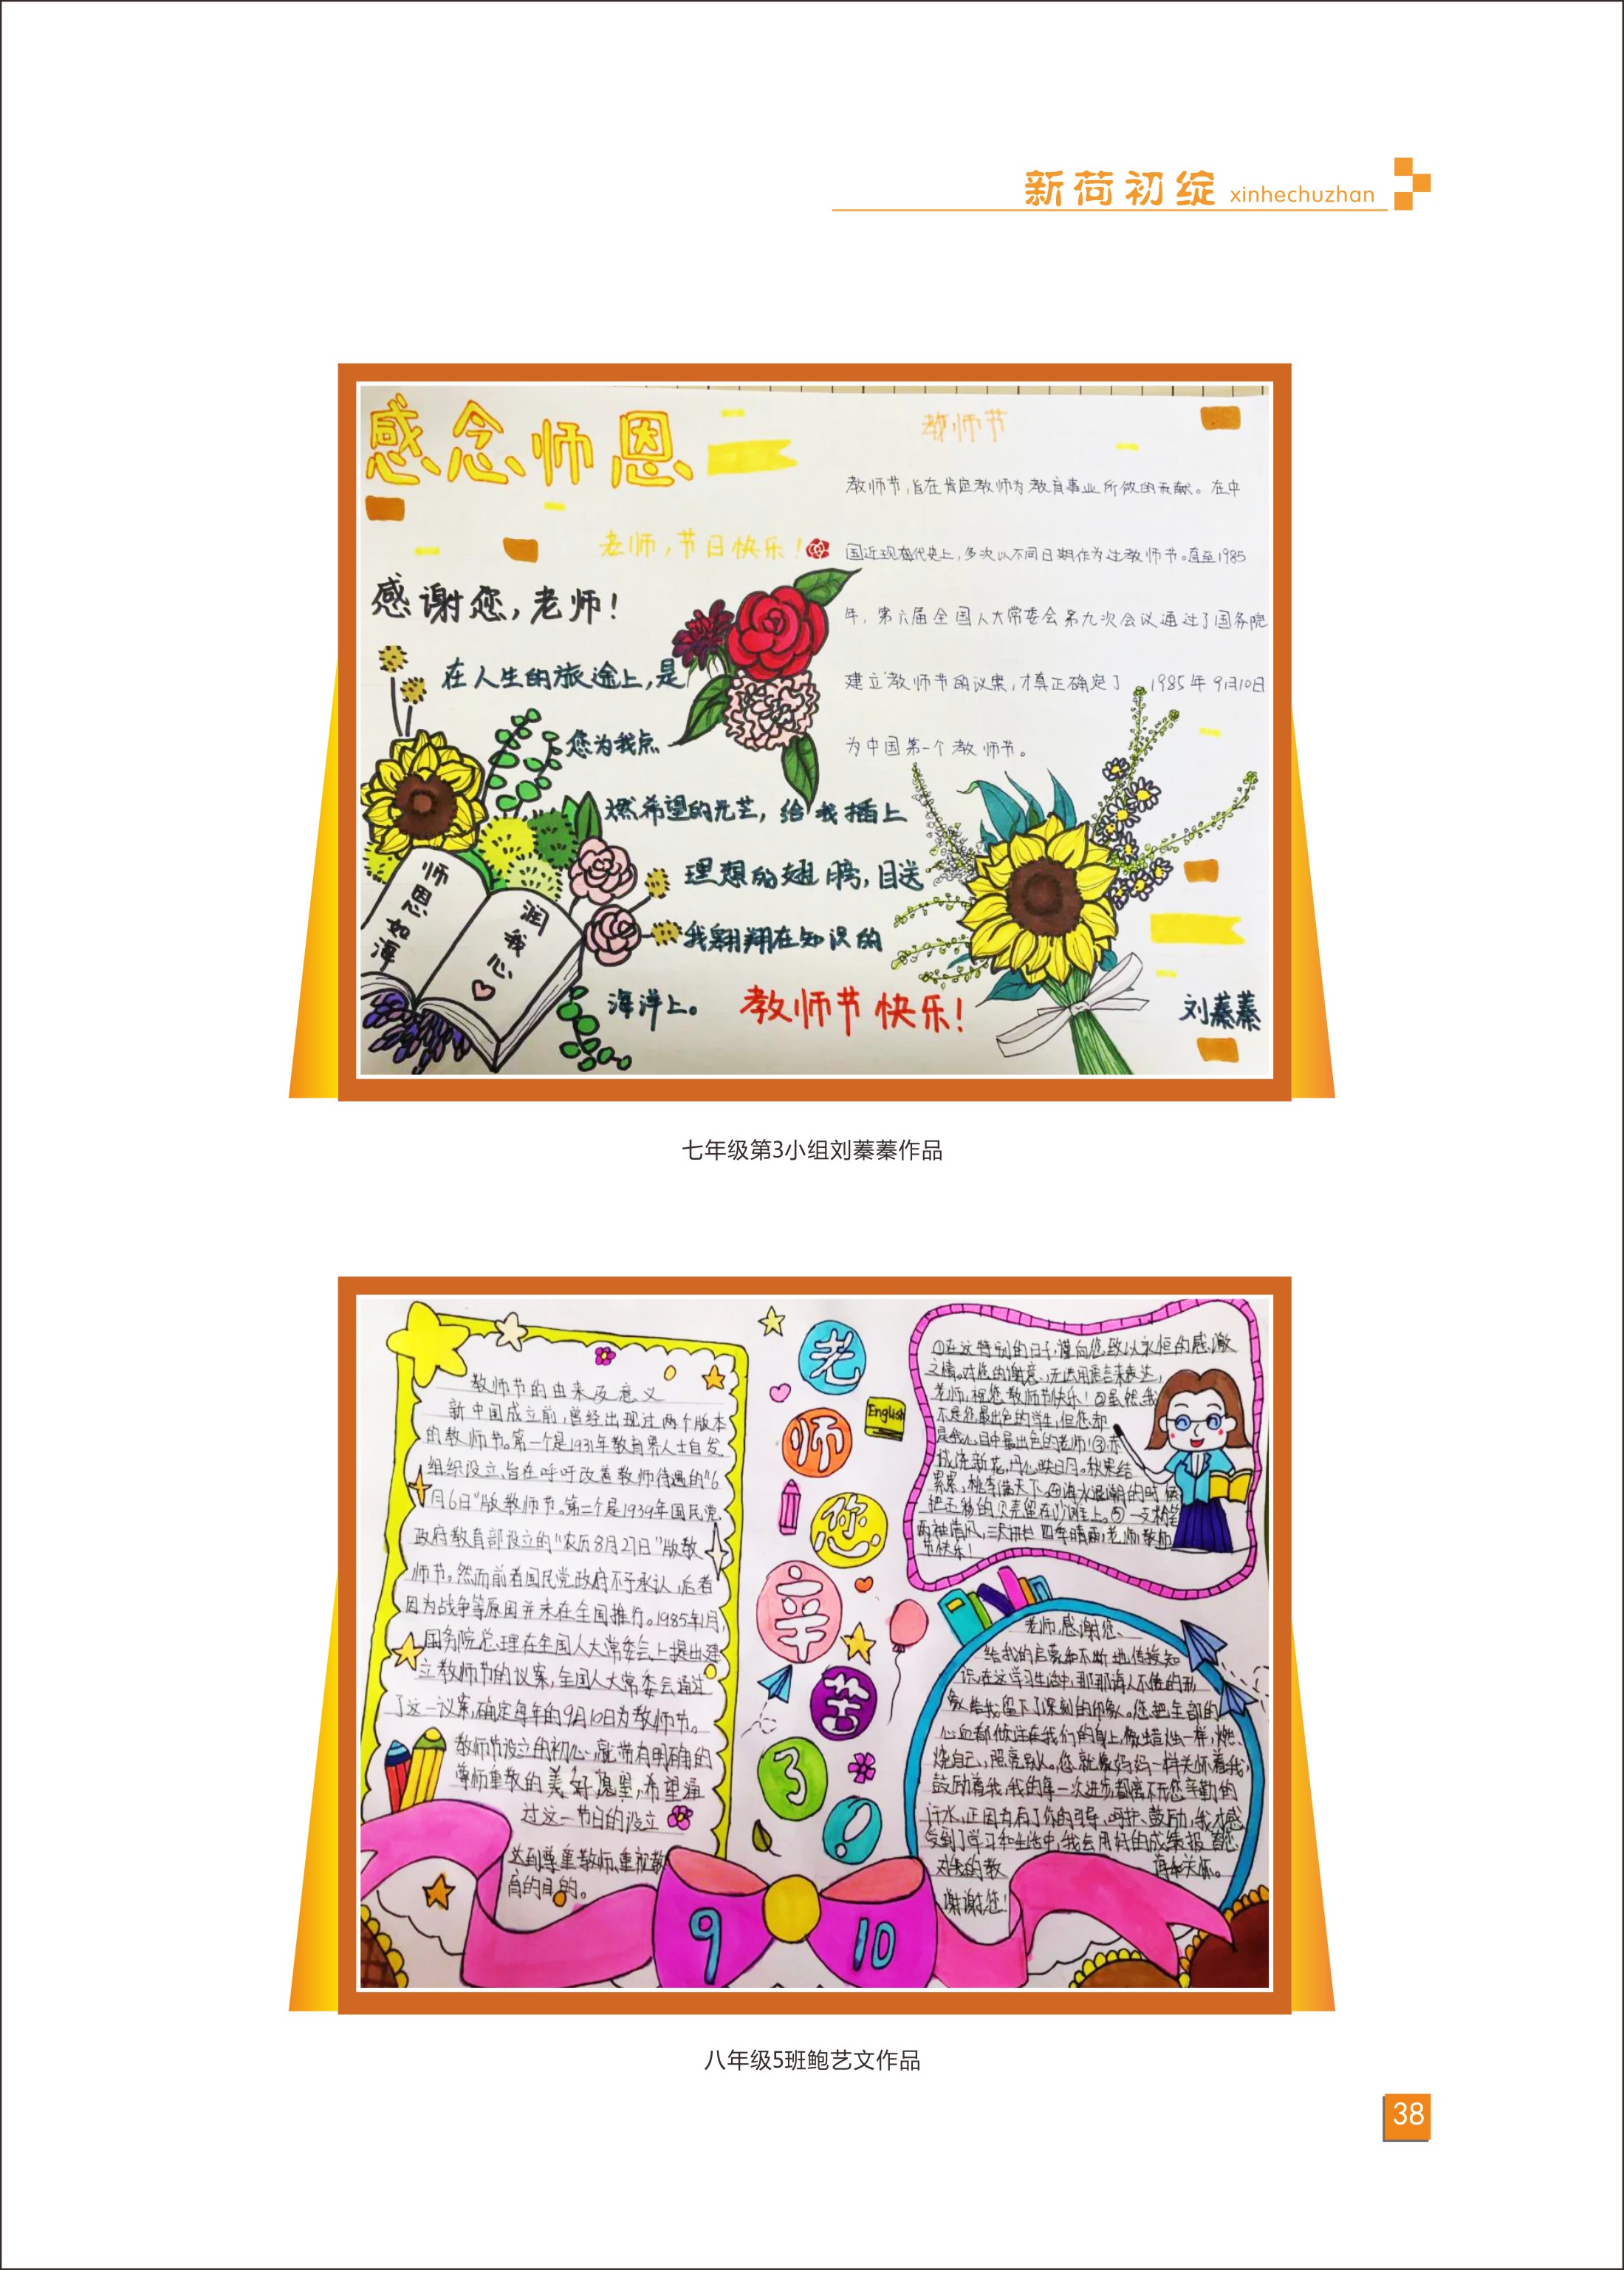 新荷初绽 xinhechuzhan
感念师恩
老师，节日快乐！
感谢您，老师！
在人生的旅途上，是
您为我点
燃希望的光芒，给我插上
理想的翅膀，目送
我翱翔在知识的
海洋上。
教师节快乐！
师恩如海
润我心
教师节
教师节，旨在肯定教师为教育事业所做的贡献。在中
国近现代史上，多次以不同日期作为过教师节。直至1985
年，第六届全国人大常委会第九次会议通过了国务院
建立教师节的议案，才真正确定了 1985年9月10日
为中国第一个教师节。
刘蓁蓁
七年级第3小组刘蓁蓁作品
教师节的由来及意义
新中国成立前，曾经出现过两个版本
的教师节。第一个是1931年教育界人士自发
组织设立，旨在呼吁改善教师待遇的“6
月6日”版教师节。第二个是1939年国民党
政府教育部设立的“农历8月27日”版教
师节。然而前者国民党政府不予承认，后者
因为战争等原因并未在全国推行。1985年1月，
国务院总理在全国人大常委会上提出建
立教师节的议案，全国人大常委会通过
了这一议案，确定每年的9月10日为教师节。
教师节设立的初心，就带有明确的
尊师重教的美好愿望，希望通
过这一节日的设立
达到尊重教师、重视教
育的目的。
老师您辛苦了
English
①在这特别的日子，谨向您致以永恒的感激
之情。对您的谢意，无法用语言来表达，
老师，祝您教师节快乐！②虽然我
不是您最出色的学生，但您却
是我心目中最出色的老师！③赤
诚浇新花，丹心映日月。秋果结
累累，桃李满天下。④海水退潮的时候
把五彩的贝壳留在沙滩上。⑤一支粉笔
两袖清风，三尺讲台四季晴雨，老师，教师
节快乐！
老师，感谢您、
给我的启蒙和不断地传授知
识，在这学习生活中，那那诲人不倦的形
象给我留下了深刻的印象。您把全部的
心血都倾注在我们的身上，像蜡烛一样，燃
烧自己，照亮别人。您就像妈妈一样关怀着我，
鼓励着我，我的每一次进步都离不开您辛勤的
汗水，正因为有了你的引导、呵护、鼓励，我才感
受到了学习和生活中，我会用好的成绩报答您
对我的教 诲和关怀。
谢谢您！
9 10
八年级5班鲍艺文作品
38